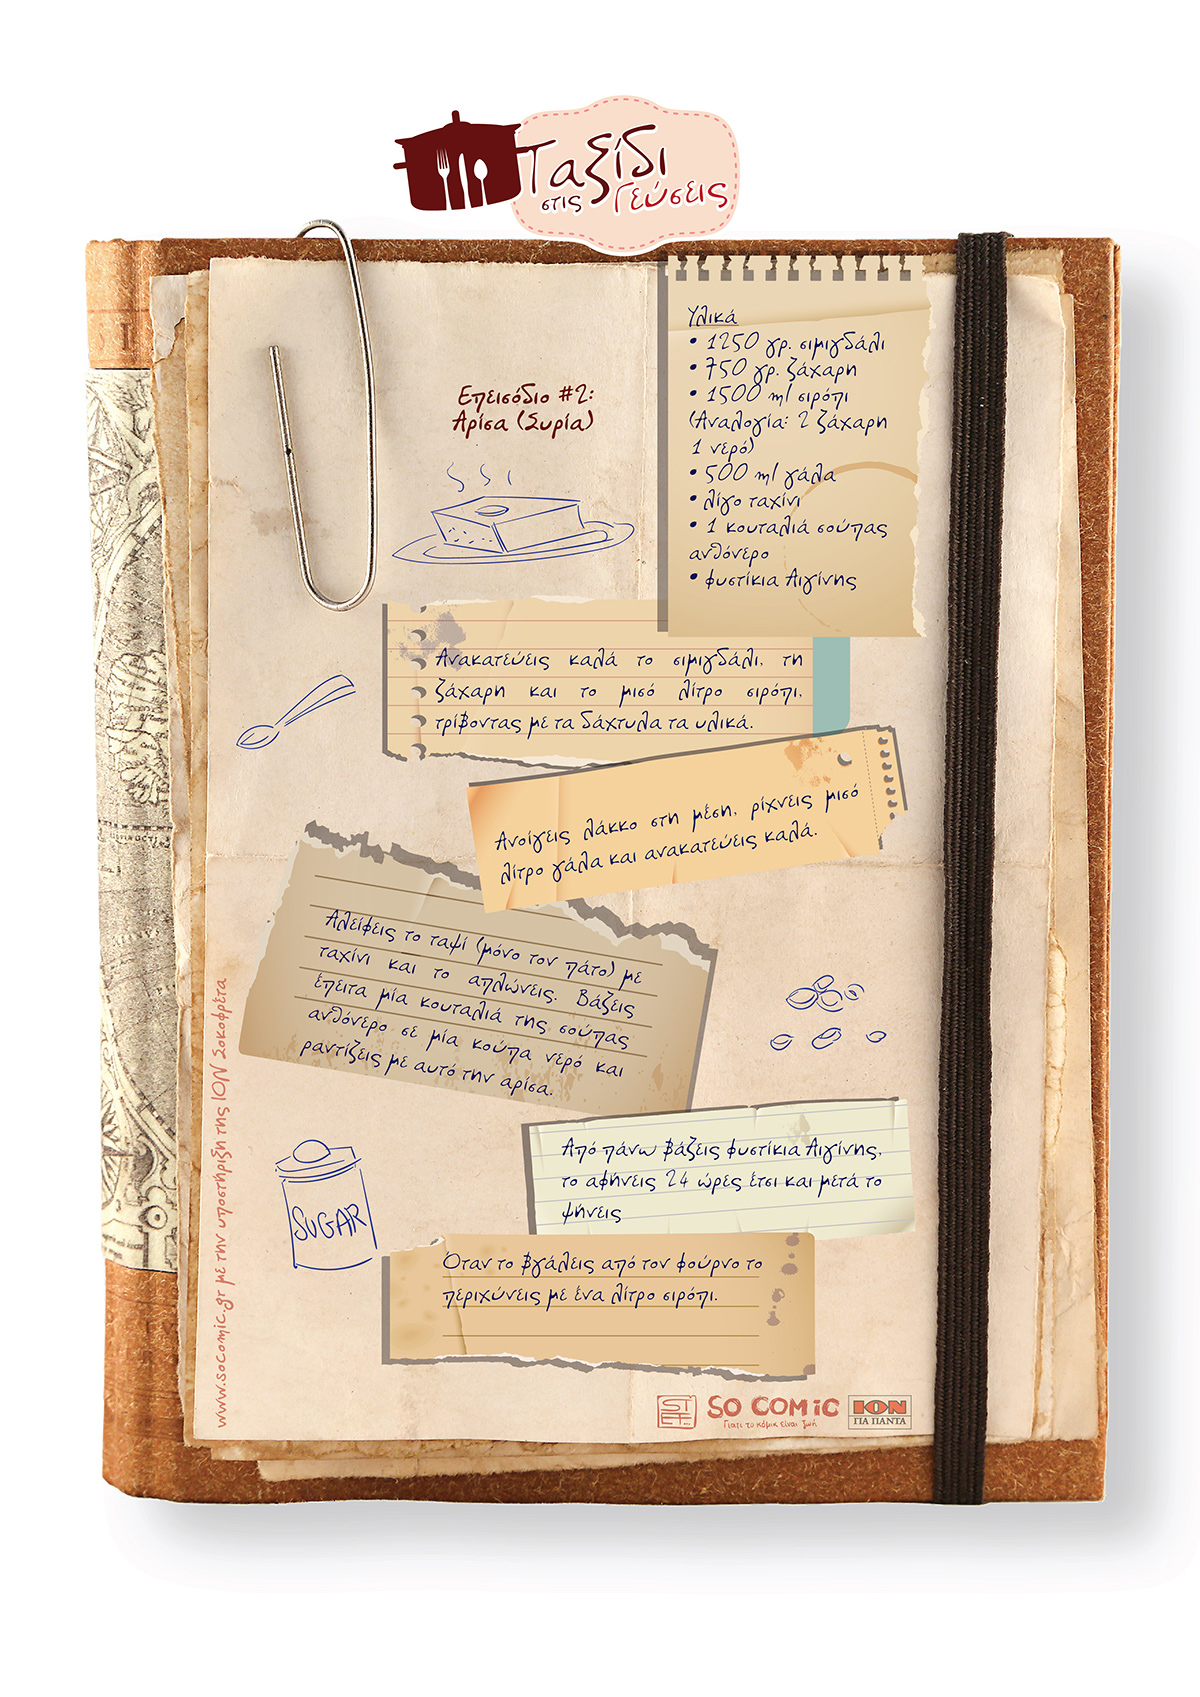 Ταξίδι
στις Γεύσεις
Επεισόδιο #2:
Αρίσα (Συρία)
Υλικά
• 1250 γρ. σιμιγδάλι
• 750 γρ. ζάχαρη
• 1500 ml σιρόπι
(Αναλογία: 2 ζάχαρη
1 νερό)
• 500 ml γάλα
• λίγο ταχίνι
• 1 κουταλιά σούπας
ανθόνερο
• φυστίκια Αιγίνης
Ανακατεύεις καλά το σιμιγδάλι, τη
ζάχαρη και το μισό λίτρο σιρόπι,
τρίβοντας με τα δάχτυλα τα υλικά.
Ανοίγεις λάκκο στη μέση, ρίχνεις μισό
λίτρο γάλα και ανακατεύεις καλά.
Αλείφεις το ταψί (μόνο τον πάτο) με
ταχίνι και το απλώνεις. Βάζεις
έπειτα μία κουταλιά της σούπας
ανθόνερο σε μία κούπα νερό και
ραντίζεις με αυτό την αρίσα.
Από πάνω βάζεις φυστίκια Αιγίνης,
το αφήνεις 24 ώρες έτσι και μετά το
ψήνεις
SUGAR
Όταν το βγάλεις από τον φούρνο το
περιχύνεις με ένα λίτρο σιρόπι.
www.socomic.gr με την υποστήριξη της ΙΟΝ Σοκοφρέτα
SO COMiC
Γιατί το κόμικ είναι ζωή
ΙΟΝ
ΓΙΑ ΠΑΝΤΑ